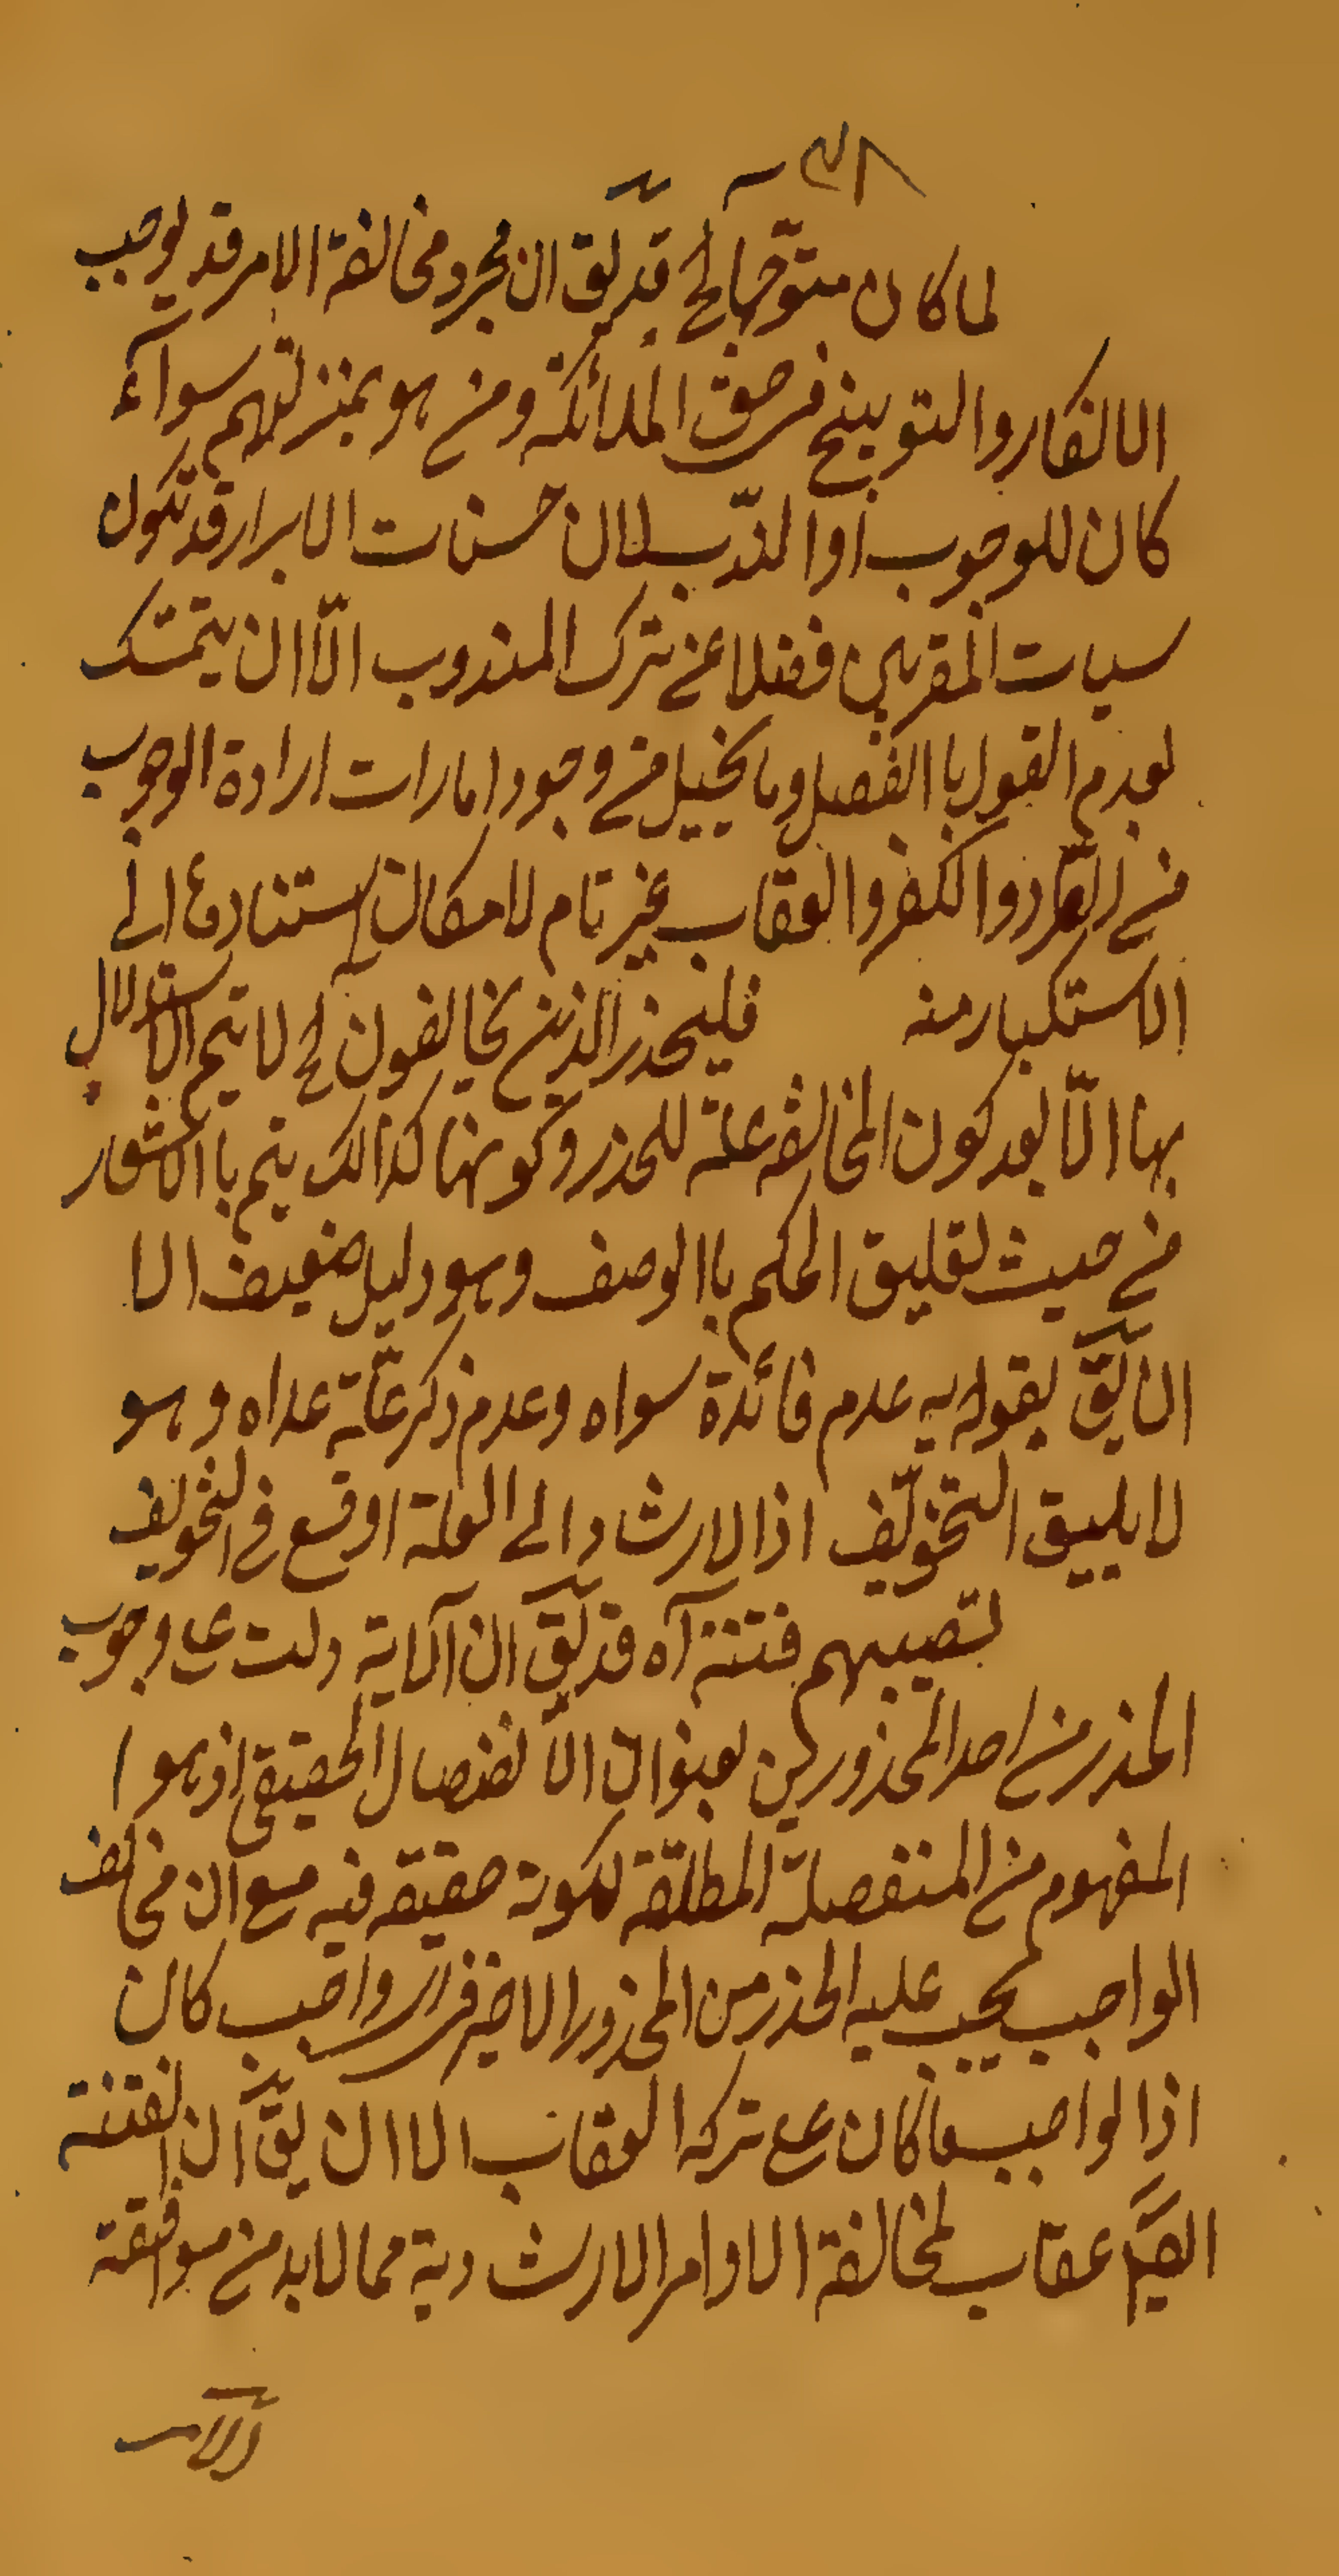 لما كان متوجها الخ قد يق ان مجرد مخالفة الامر قد يوجب
الانكار والتوبيخ في حق الملائكة ومن هو بمنزلتهم سوآء
كان للوجوب او الندب لان حسنات الابرار قد تكون
سيات المقربين فضلا عن ترك المندوب الّا ان يتمسك
بعدم القول باالفصل وما يخيل من وجود امارات ارادة الوجوب
من الطرد والكفر والعقاب غير تام لامكان استناده الى
الاستكبار منه فليحذر الذين يخالفون الخ لا يتم الاستدلال
بها الّا بعد كون المخالفة علة للحذر وكونها كذالك يتم باالاشعار
من حيث تعليق الحكم باالوصف وهو دليل ضعيف الا
ان يق بقوله به عدم فائدة سواه وعدم ذكر علّة عداه وهو
لا يليق التخويف اذ الارشاد الى العلة اوقع في التخويف
تصيبهم فتنة آه قد يق ان الاية دلت على وجوب
الحذر من احد المحذورين بعنوان الانفصال الحقيقى اذ هو
المفهوم من المنفصلة المطلقة لكونه حقيقة فيه مع ان مخالف
الواجب يجب عليه الحذر من المحذور الاخير في اى واجب كان
اذ الواجب ما كان على تركه العقاب الا ان يق ان الفتنة
ايضا عقاب لمخالفة الاوامر الارشادية مما لابد من موافقة